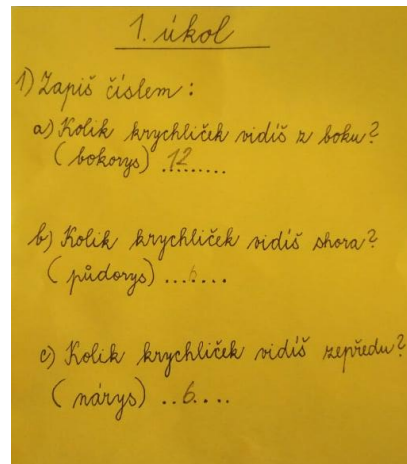 1. úkol
1) Zapiš číslem :
a) Kolik krychliček vidíš z boku?
( bokorys) 12.........
b) Kolik krychliček vidíš shora?
( půdorys) ...6....
c) Kolik krychliček vidíš zepředu?
( nárys) ..6....